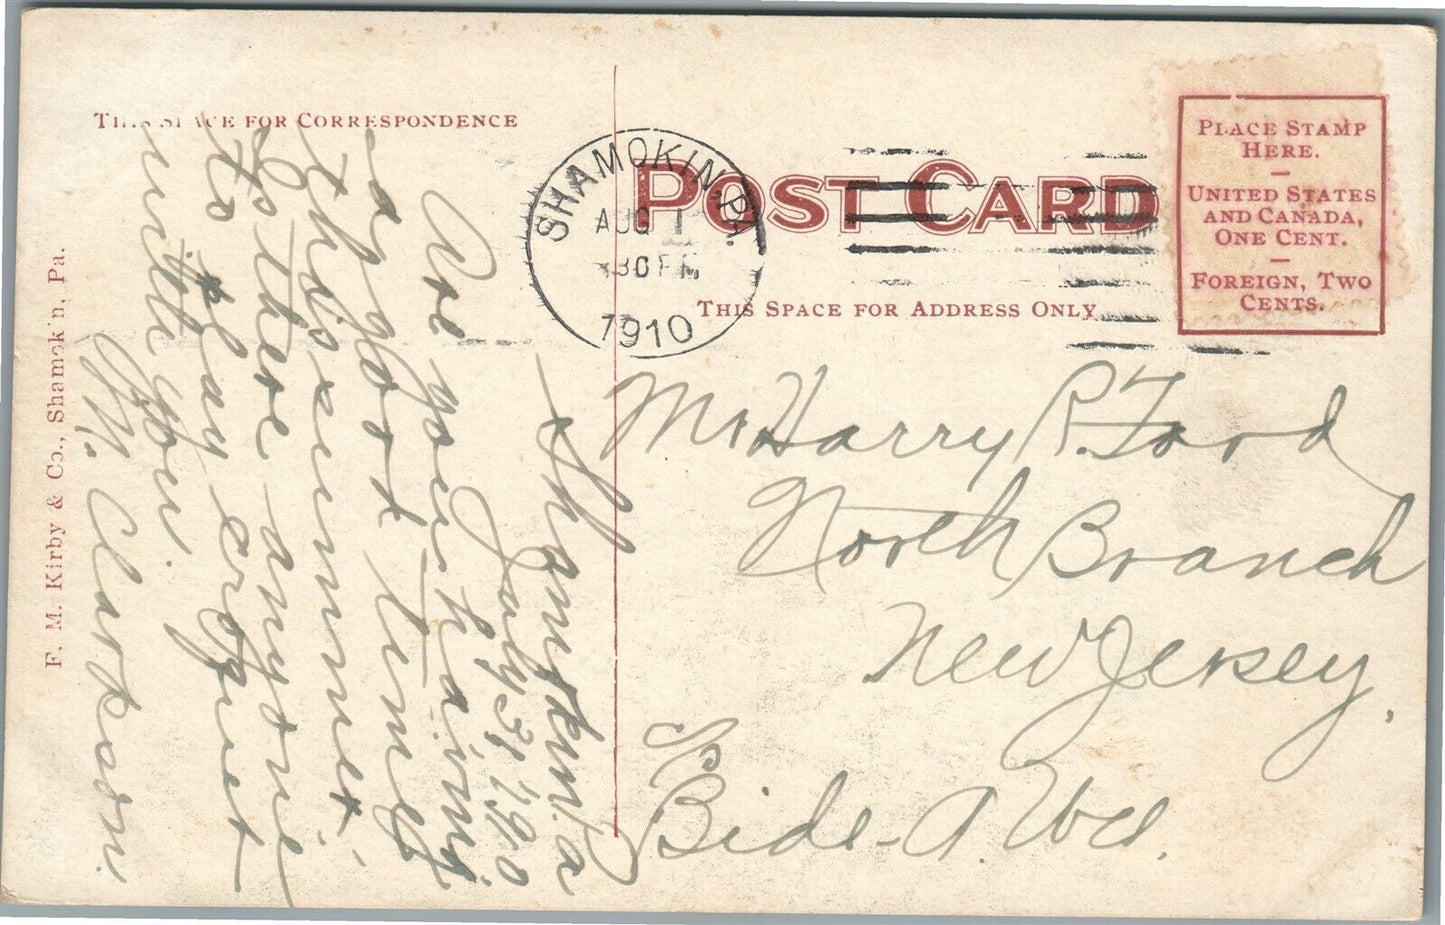 THIS SPACE FOR CORRESPONDENCE
POST CARD
THIS SPACE FOR ADDRESS ONLY
PLACE STAMP
HERE.
UNITED STATES
AND CANADA,
ONE CENT.
FOREIGN, TWO
CENTS.
SHAMOKIN, PA.
AUG 1
30 PM
1910
F. M. Kirby & Co., Shamokin, Pa.
Shamokin Pa
July 31 1910
Are you having
a good time
this summer.
Is there anyone
to play croquet
with you.
M. Clarkson.
Mr Harry R. Ford
North Branch
New Jersey.
℅ Bide-A-Wee.